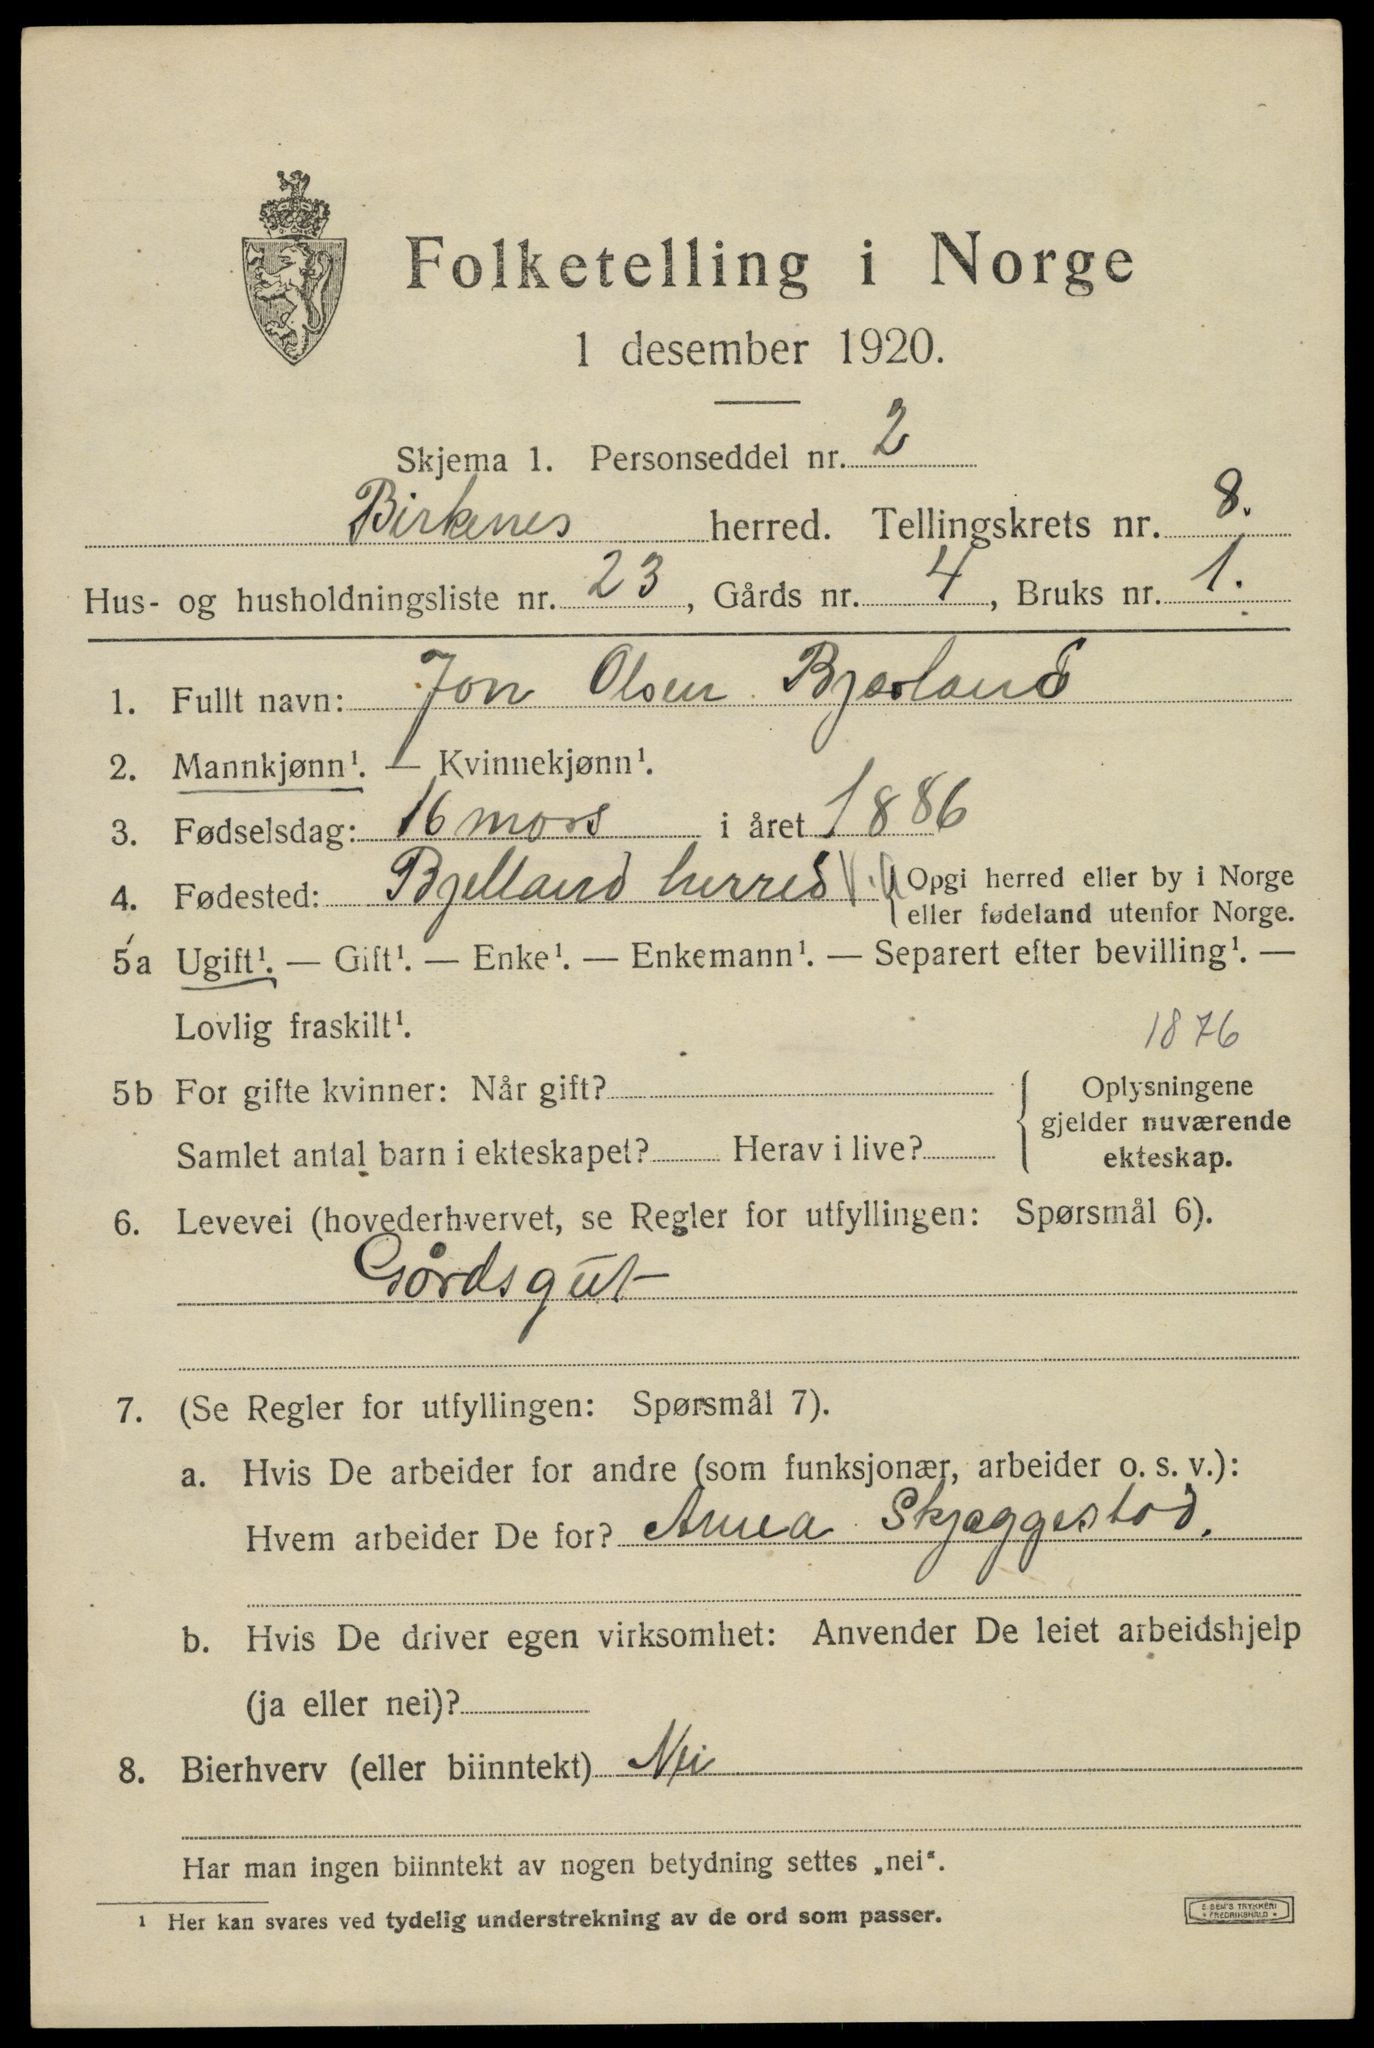 Folketelling i Norge
1 desember 1920.
Skjema 1. Personseddel nr. 2
Birkenes herred. Tellingskrets nr. 8.
Hus- og husholdningsliste nr. 23, Gårds nr. 4, Bruks nr. 1.
1. Fullt navn: Jon Olsen Bjærland
2. Mannkjønn¹. — Kvinnekjønn¹.
3. Fødselsdag: 16 mars i året 1886
4. Fødested: Bjelland herred V.A Opgi herred eller by i Norge
eller fødeland utenfor Norge.
5a Ugift¹. — Gift¹. — Enke¹. — Enkemann¹. — Separert efter bevilling¹. —
Lovlig fraskilt¹.
1876
5b For gifte kvinner: Når gift? Oplysningene
gjelder nuværende
Samlet antal barn i ekteskapet? Herav i live? ekteskap.
6. Levevei (hovederhvervet, se Regler for utfyllingen: Spørsmål 6).
Gårdsgut
7. (Se Regler for utfyllingen: Spørsmål 7).
a. Hvis De arbeider for andre (som funksjonær, arbeider o. s. v.):
Hvem arbeider De for? Anna Skjæggestad.
b. Hvis De driver egen virksomhet: Anvender De leiet arbeidshjelp
(ja eller nei)?
8. Bierhverv (eller biinntekt) Nei
Har man ingen biinntekt av nogen betydning settes „nei“.
¹ Her kan svares ved tydelig understrekning av de ord som passer.
E. SEM'S TRYKKERI
FREDRIKSHALD